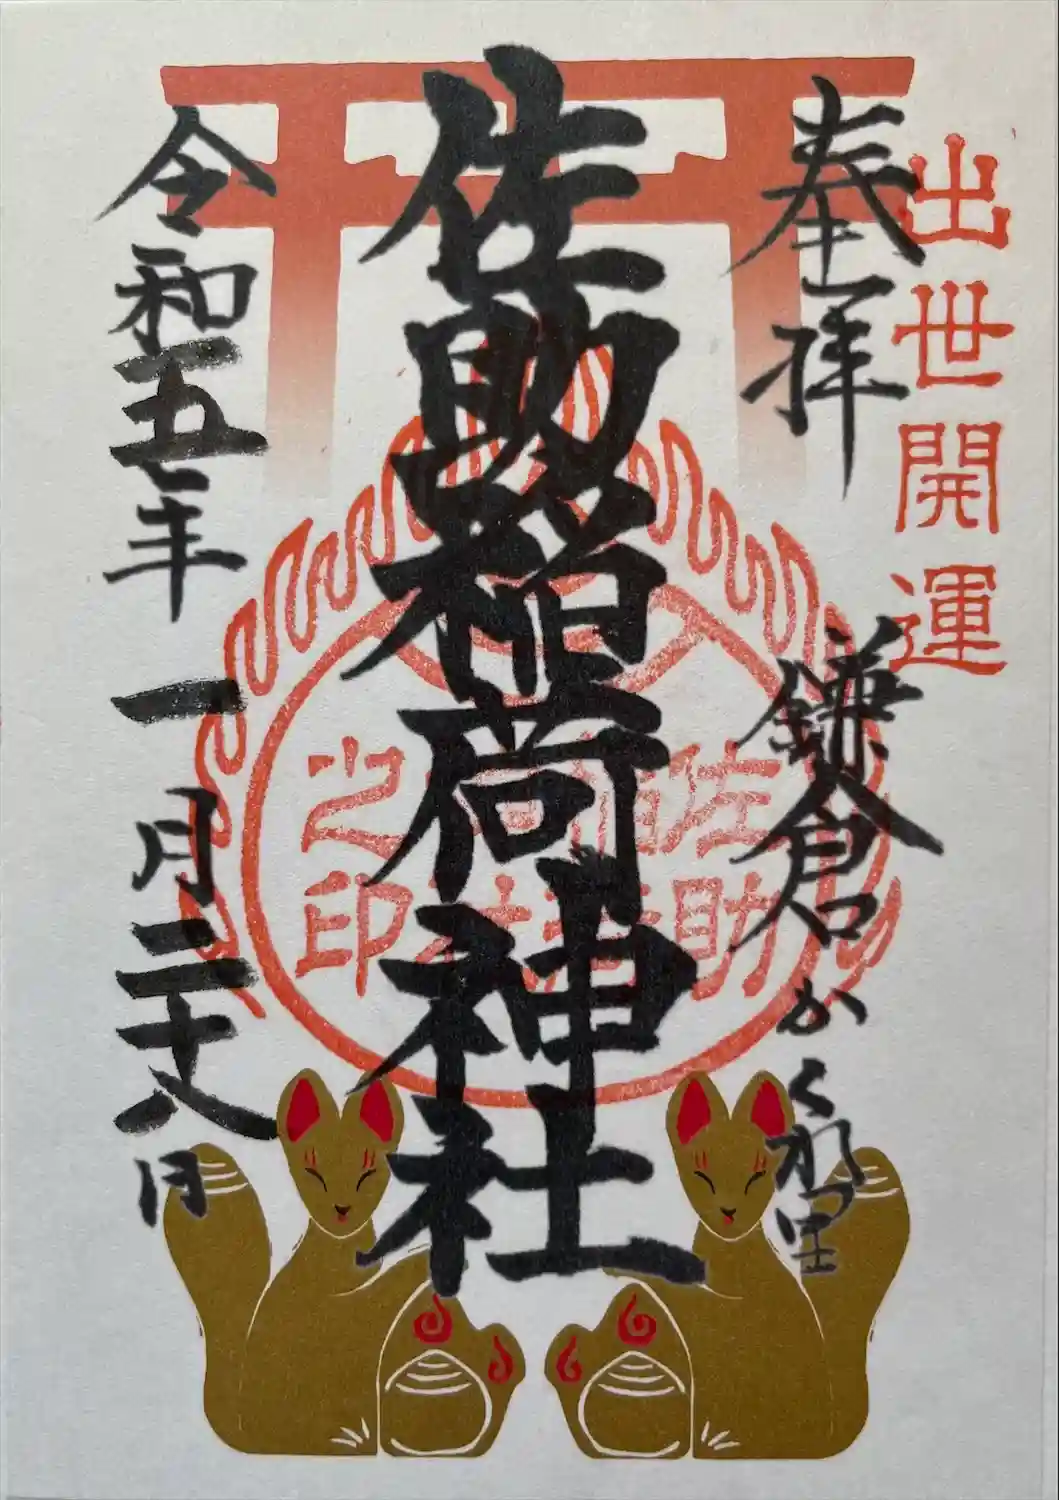 出世開運
奉拝
鎌倉かくれ里
佐助稲荷神社
佐助
之印
令和五年一月二十八日